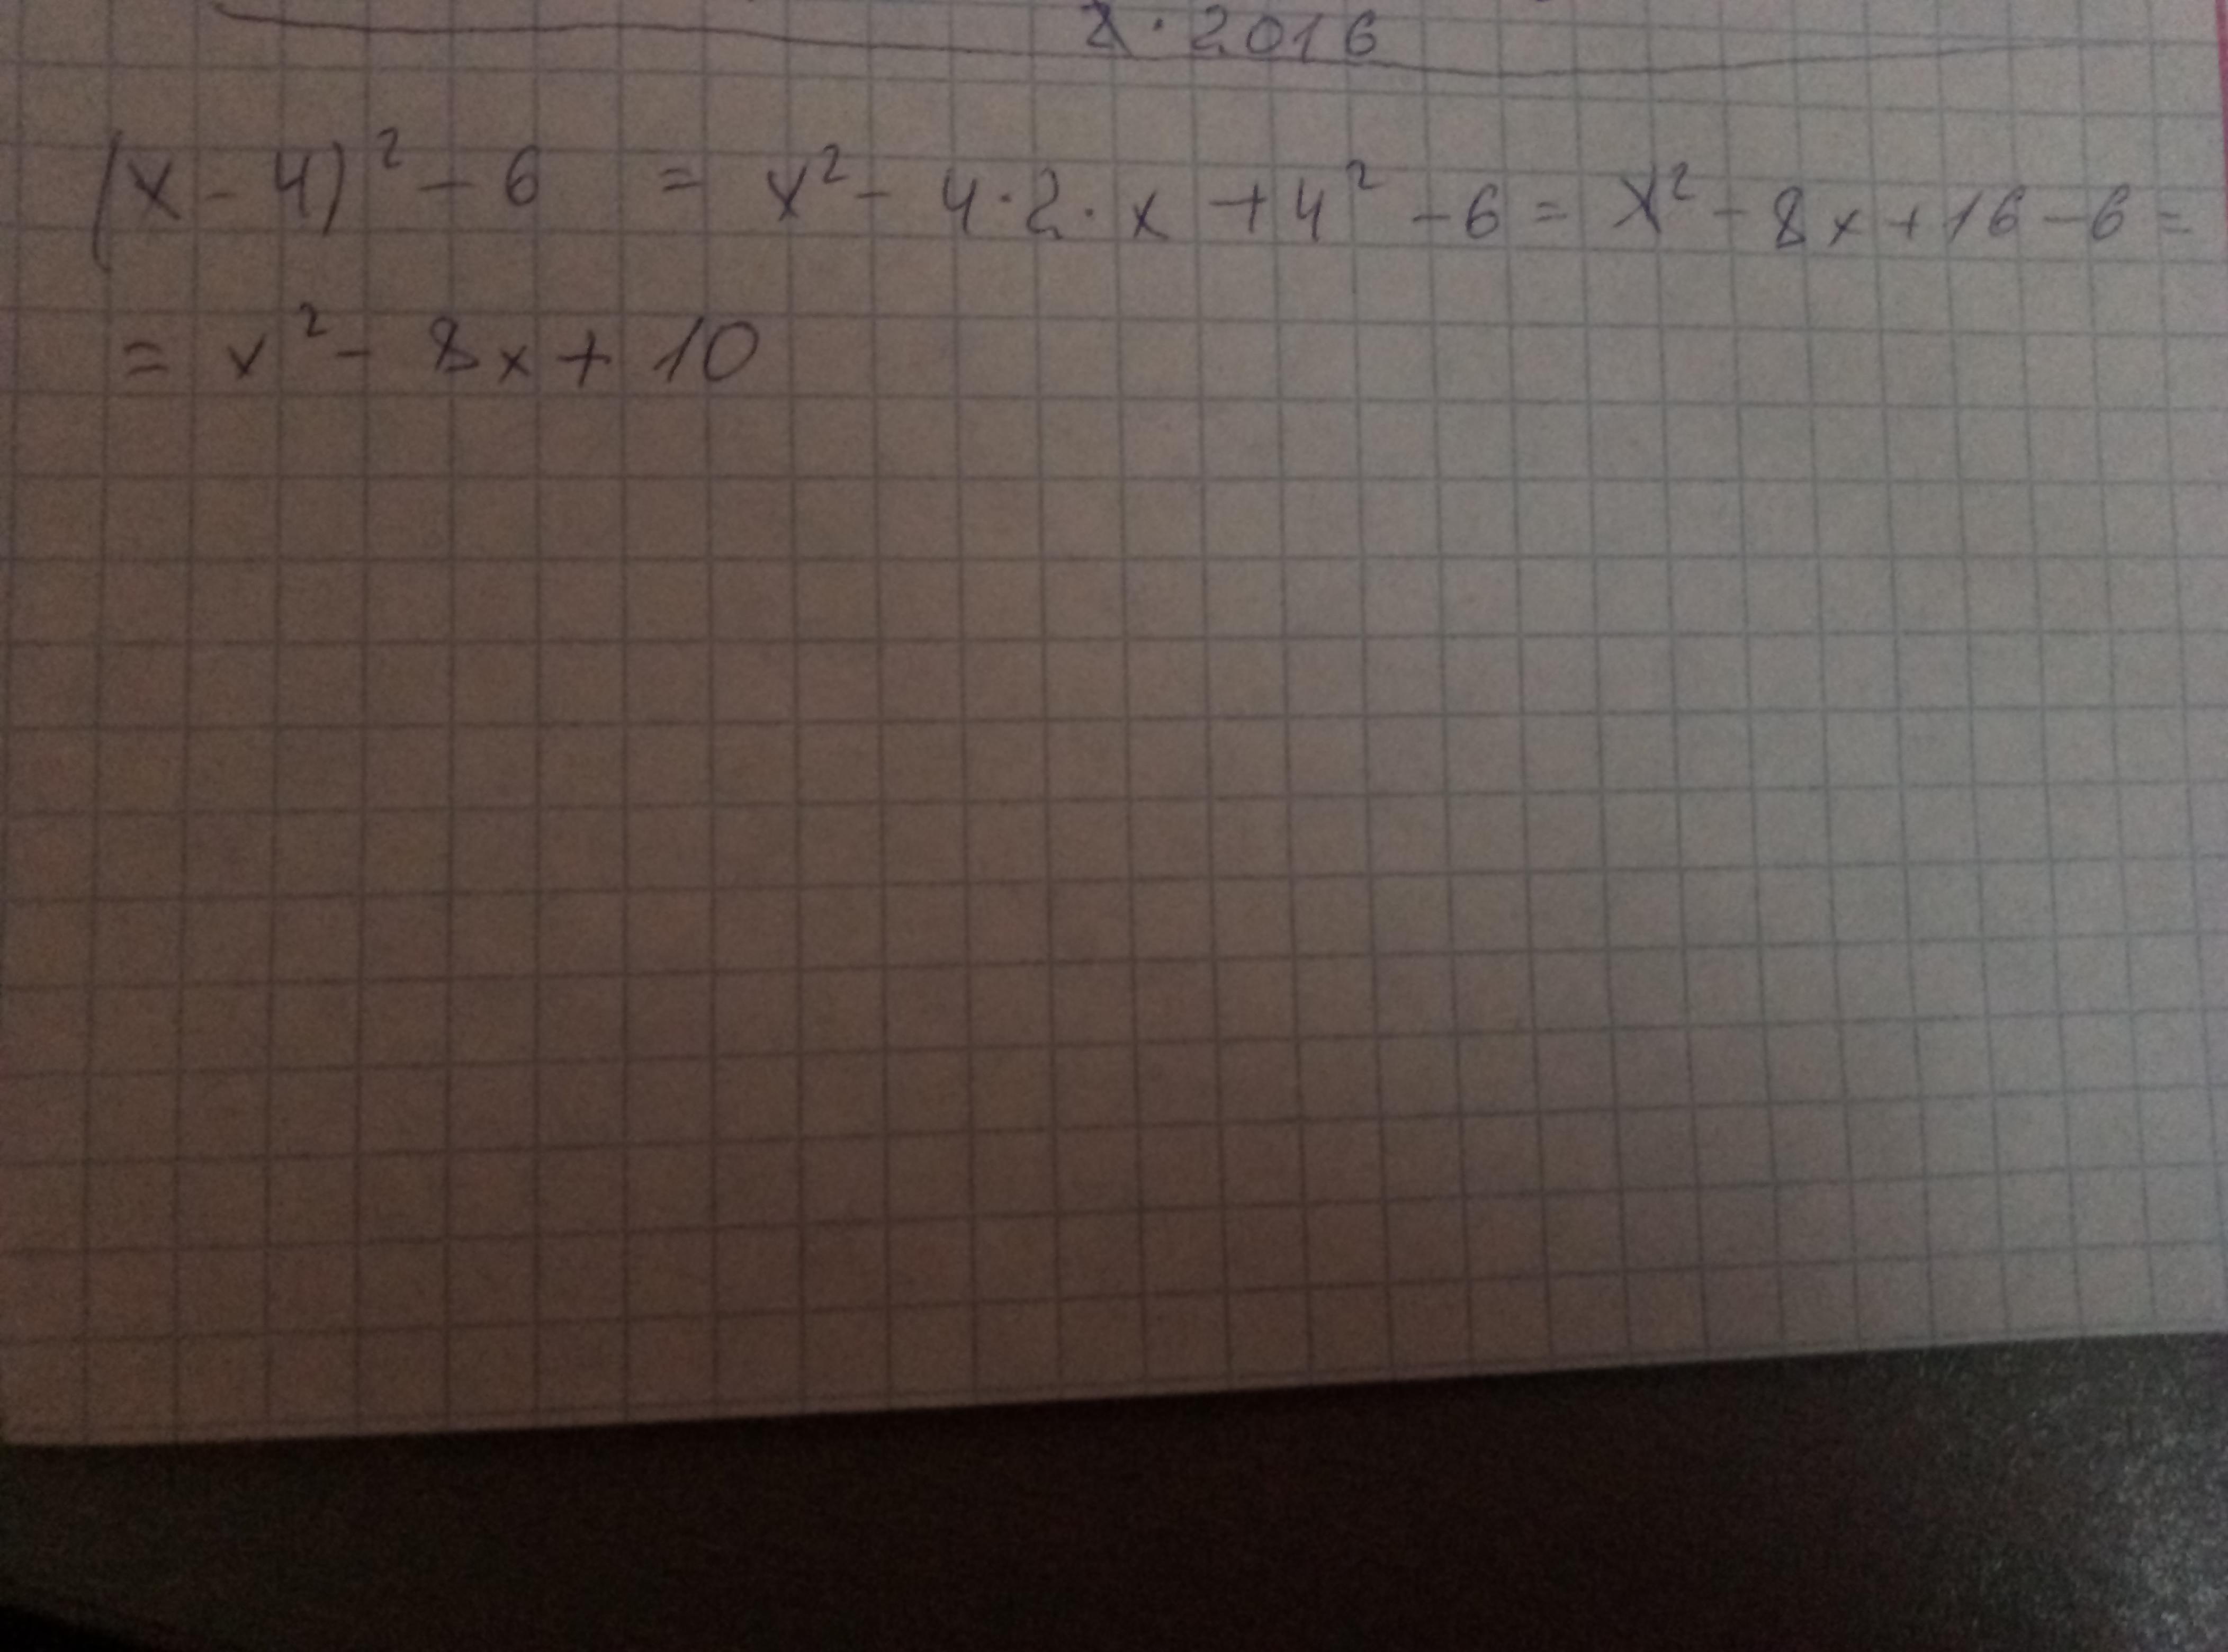 2·2016
(x-4)² - 6 = x² - 4·2·x + 4² - 6 = x² - 8x + 16 - 6 =
= x² - 8x + 10